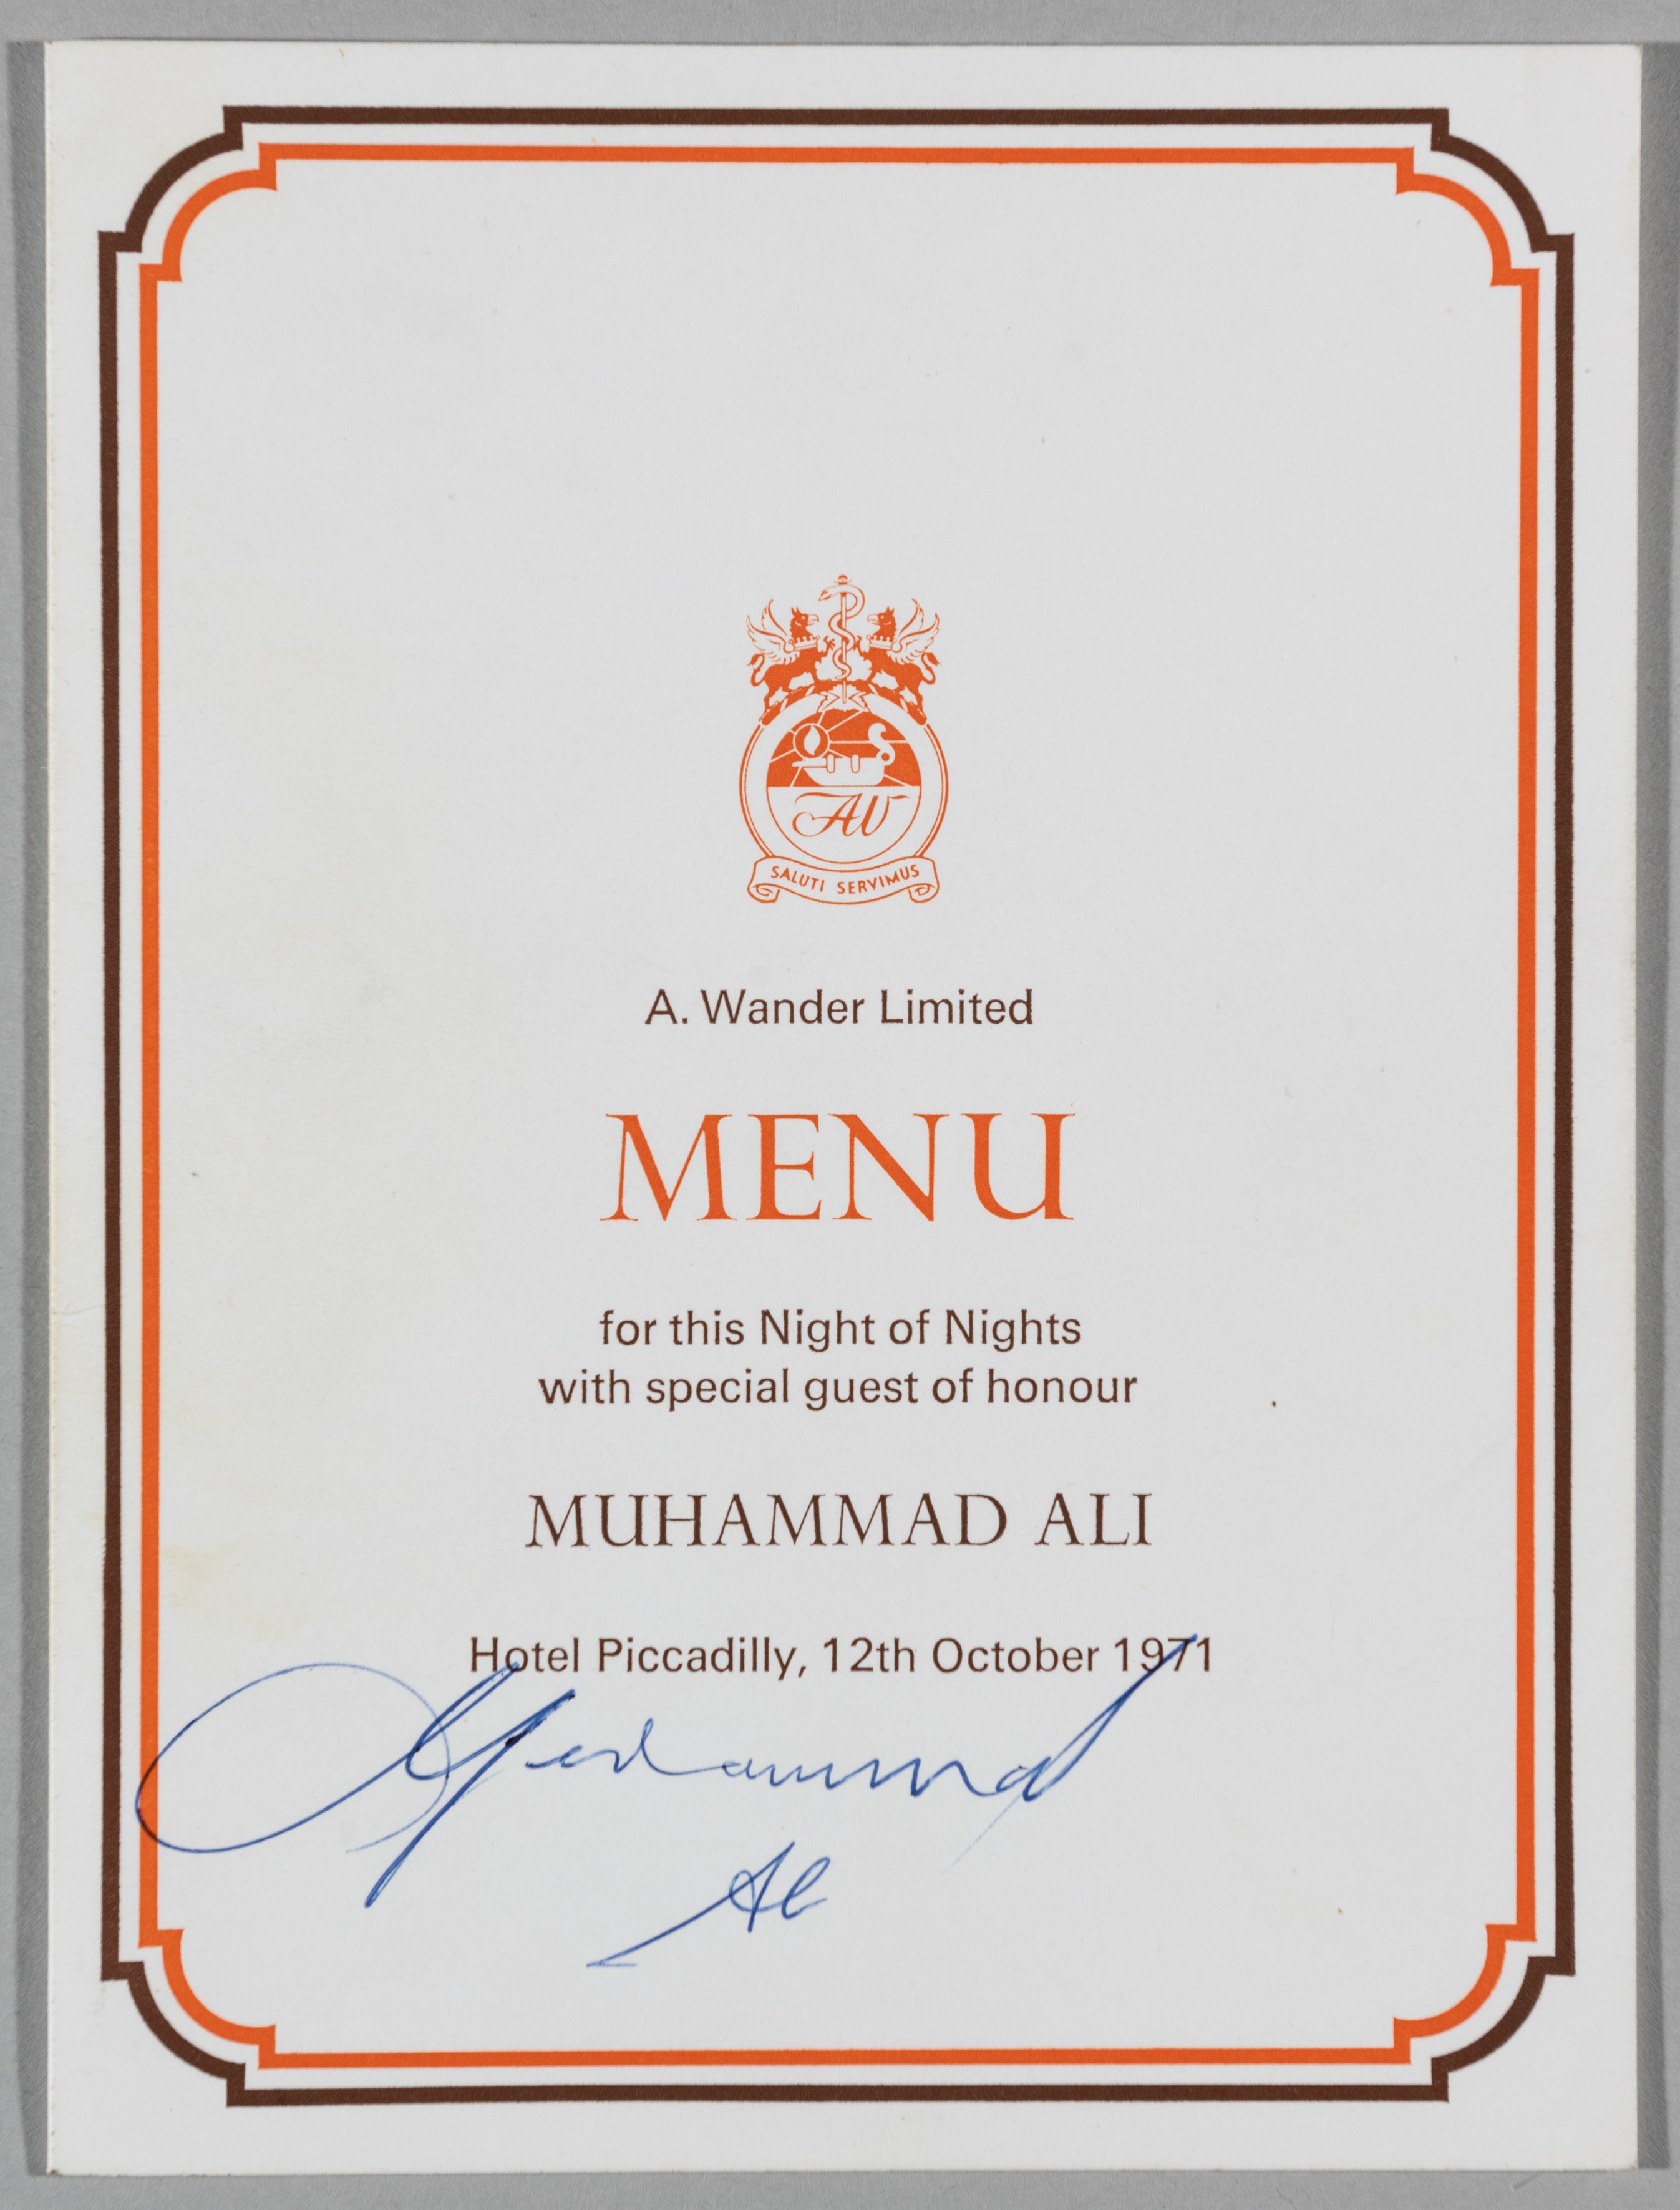 AW
SALUTI SERVIMUS
A. Wander Limited
MENU
for this Night of Nights
with special guest of honour
MUHAMMAD ALI
Hotel Piccadilly, 12th October 1971
Muhammad
Ali